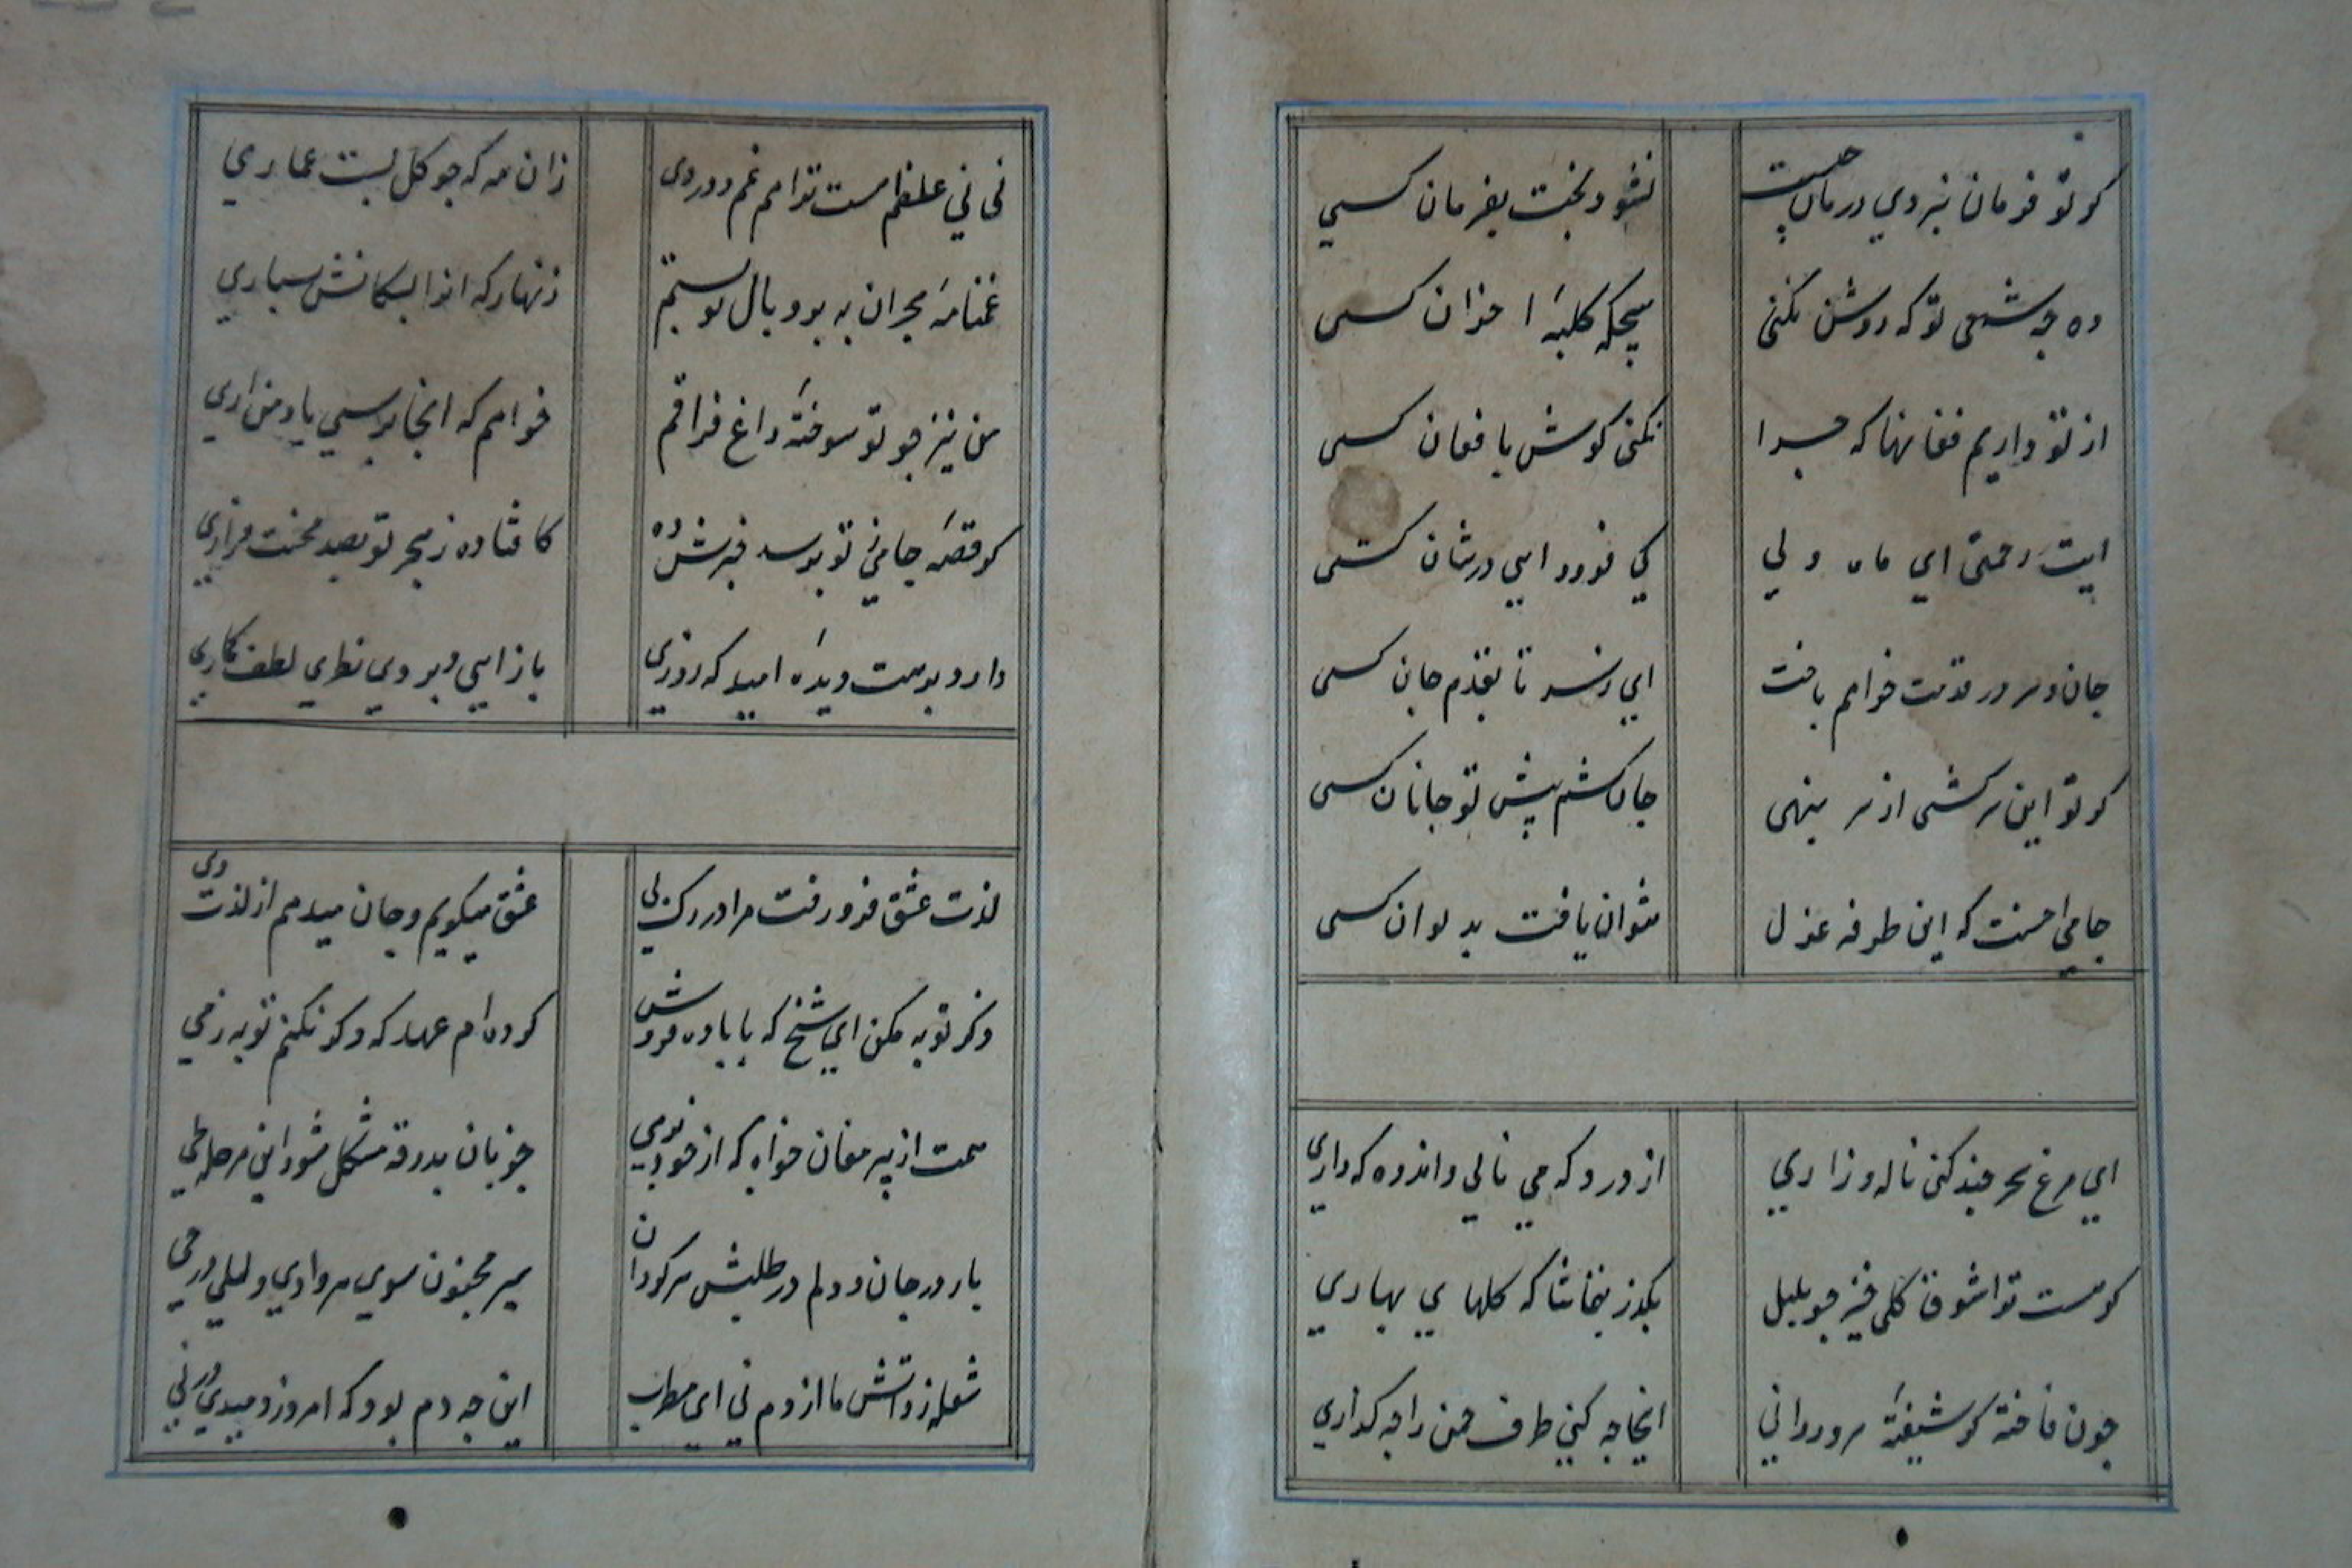 کر تو فرمان نبردی درمان چیست
نشود بخت بفرمان کسی
وه چه شمعی تو که روشن نکنی
هیچکه کلبهٔ احزان کسی
از تو داریم فغانها که چرا
نکنی کوش بافغان کسی
ایت رحمتی ای ماه ولی
کی فرود ایی در شان کسی
جان و سر در قدمت خواهم باخت
ای نسد تا بقدم جان کسی
کر تو این سرکشی از سر بنهی
جان کشم پیش تو جانان کسی
جامی احسنت که این طرفه غزل
نتوان یافت بدیوان کسی
ای مرغ سحر چند کنی ناله و زاری
از درد که می نالی و اندوه که داری
کر هست ترا شوق کلی خیز چو بلبل
بکذر بتماشا که کلهای بهاری
چون فاخته کر شیفتهٔ سرو روانی
اینجا چه کنی طرف چمن را چه کذاری
نی نی غلطم هست ترا هم غم دوری
زان مه که چو کل بست عماری
غمنامهٔ هجران به پر و بال تو بستم
زنهار که انرا بسکانش بسپاری
من نیز چو تو سوختهٔ داغ فراقم
خواهم که انجا برسی یاد من اری
کر قصهٔ جامی ز تو پرسد خبرش ده
کافتاده ز هجر تو بصد محنت و زاری
دارد بدهت دیدهٔ امید که روزی
باز ایی و بر وی نظری لطف کماری
لذت عشق فرو رفت مرا در رک و پی
عشق میکویم و جان میدهم از لذت وی
ذکر توبه مکن ای شیخ که با باده فروش
کرده ام عهد که دکر نکنم توبه ز می
همت از پیر مغان خواه که از خود برهی
جز بان بدرقه مشکل شود این مرحله طی
یار در جان و دلم در طلبش سرکردان
سیر مجنون سوی هر وادی و لیلی در حی
شعله زد اتش ما از دم نی ای مطرب
این چه دم بود که امروز دمیدی در نی